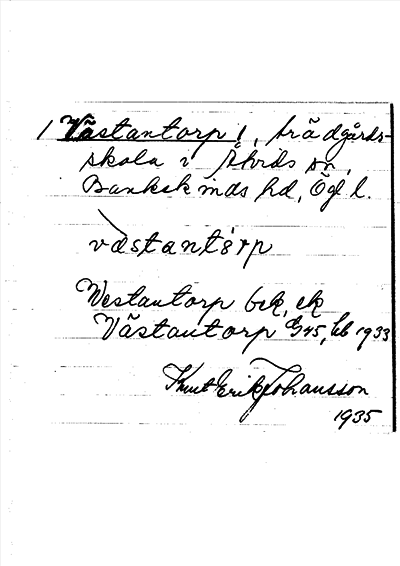 1 Västantorp!, trädgårds-
skola i Åtvids sn,
Bankekinds hd, Ög l.
västantɷrp
Westantorp bek, ek
Västantorp G45, lb 1933
Knut Erik Johansson
1935